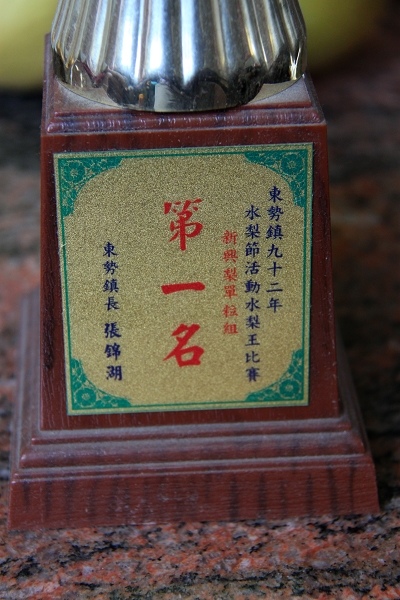 東勢鎮九十二年
水梨節活動水梨王比賽
新興梨單粒組
第一名
東勢鎮長 張錦湖